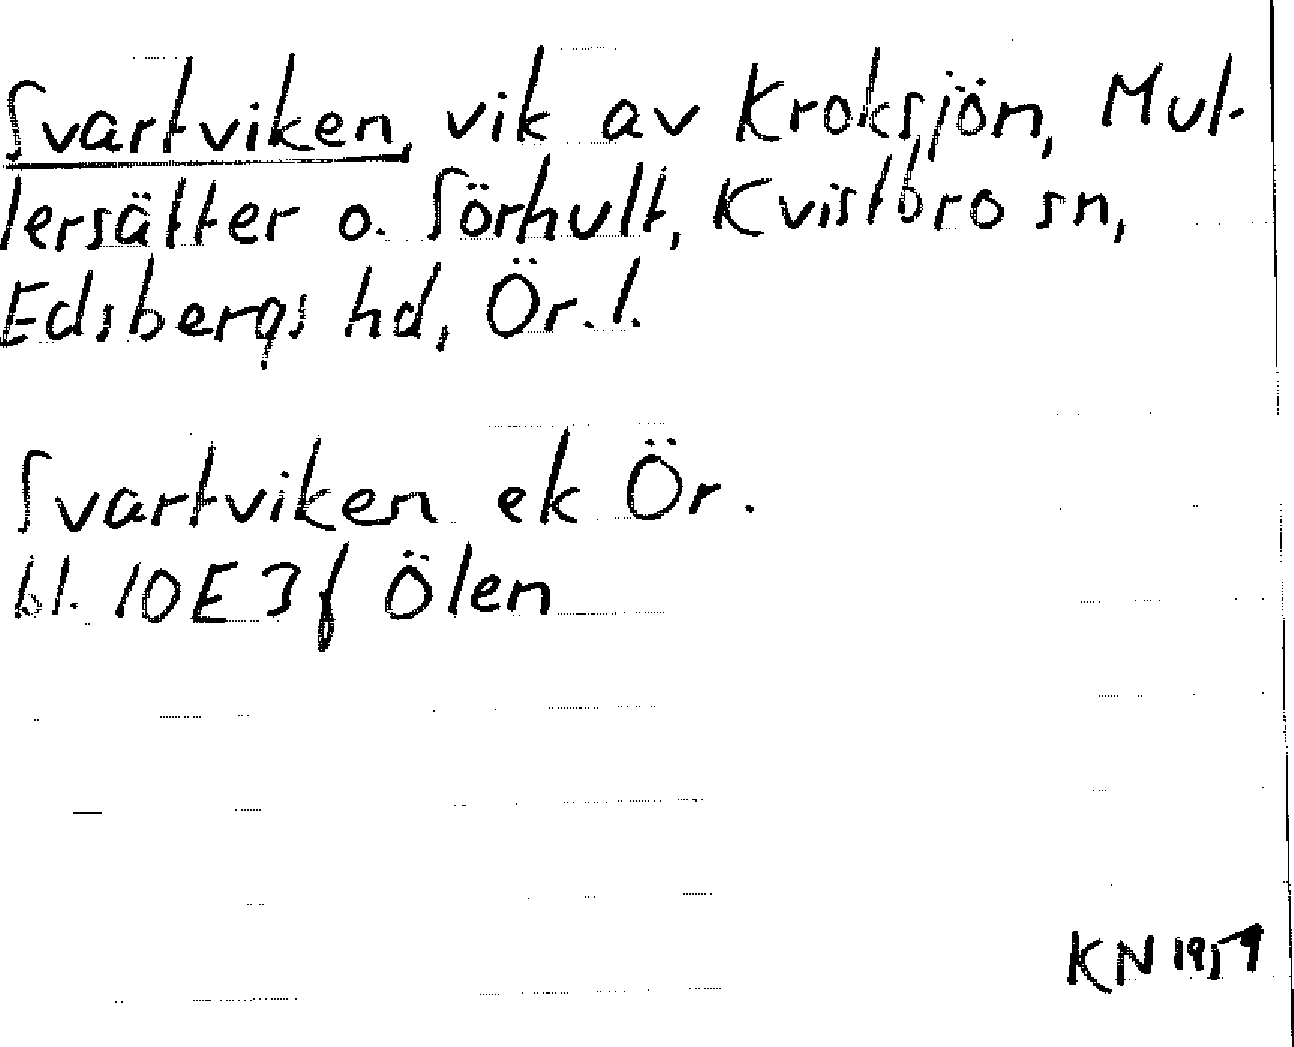 Svartviken, vik av Kroksjön, Mul-
lersätter o. Sörhult, Kvistbro sn,
Edsbergs hd, Ör. l.
Svartviken ek Ör.
bl. 10E3f Ölen
KN